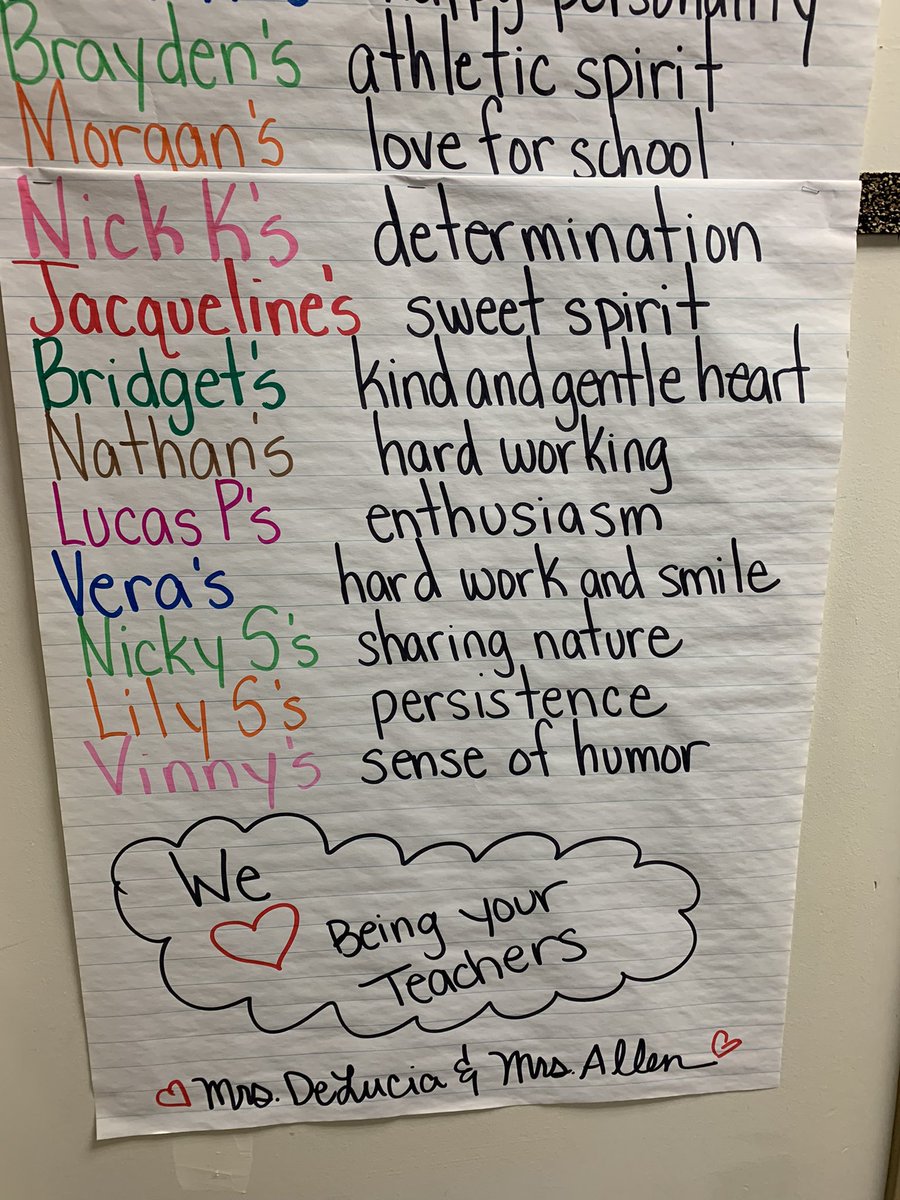 happy personality
Brayden's athletic spirit
Morgan's love for school
Nick K's determination
Jacqueline's sweet spirit
Bridget's kind and gentle heart
Nathan's hard working
Lucas P's enthusiasm
Vera's hard work and smile
Nicky S's sharing nature
Lily S's persistence
Vinny's sense of humor
We
Being your
Teachers
Mrs. DeLucia & Mrs. Allen